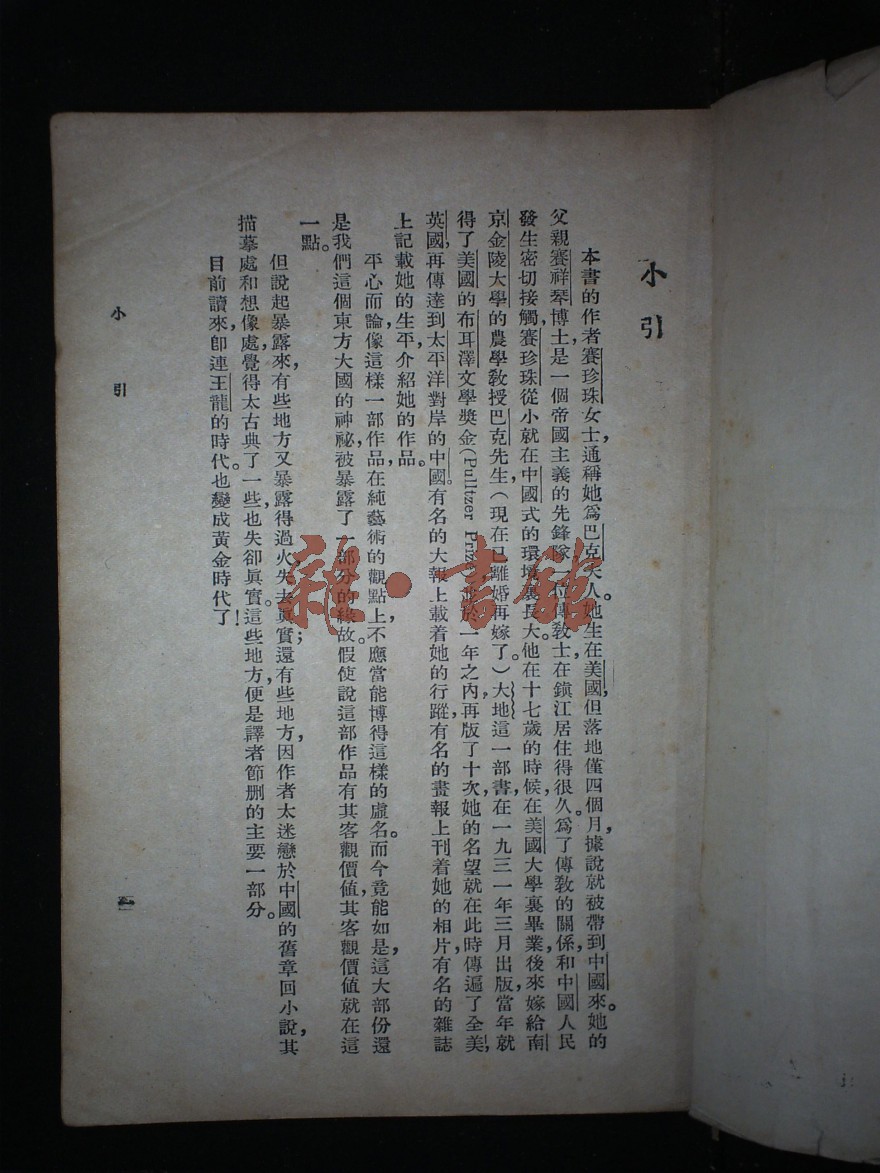 小引
本書的作者賽珍珠女士，通稱她爲巴克夫人。她生在美國，但落地僅四個月，據說就被帶到中國來。她的
父親賽祥琴博士，是一個帝國主義的先鋒隊，一位傳教士，在鎮江居住得很久。爲了傳教的關係，和中國人民
發生密切接觸。賽珍珠從小就在中國式的環境裏長大。他在十七歲的時候，在美國大學裏畢業，後來嫁給南
京金陵大學的農學教授巴克先生，（現在已離婚再嫁了。）大地這一部書，在一九三一年三月出版，當年就
得了美國的布耳澤文學獎金（Pulltzer Priz 於一年之內，再版了十次，她的名望就在此時傳遍了全美，
英國，再傳達到太平洋對岸的中國。有名的大報上載着她的行蹤，有名的畫報上刊着她的相片，有名的雜誌
上記載她的生平，介紹她的作品。
平心而論，像這樣一部作品，在純藝術的觀點上，不應當能博得這樣的虛名。而今竟能如是，這大部份還
是我們這個東方大國的神祕，被暴露了一部分的緣故。假使說這部作品有其客觀價值，其客觀價值就在這
一點。
但說起暴露來，有些地方又暴露得過火，失去眞實；還有些地方，因作者太迷戀於中國的舊章回小說，其
描摹處和想像處，覺得太古典了一些，也失卻眞實。這些地方，便是譯者節删的主要一部分。
目前讀來，卽連王龍的時代。也變成黃金時代了！
小引
一
雜·書館